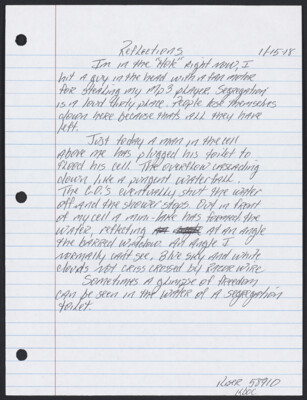 Reflections 11-15-18
I'm in the "Hole" right now, I
hit a guy in the head with a fan motor
for stealing my mp3 player. Segregation
is a loud dirty place. People lose themselves
down here because that's all they have
left.
Just today a man in the cell
above me has plugged his toilet to
flood his cell. The overflow cascading
down like a pungent waterfall.
The C.O.'s eventually shut the water
off and the shower stops. Out in front
of my cell a mini-lake has formed the
water, reflecting at an angle
the barred window. An angle I
normally can't see. Blue sky and white
clouds not criss crossed by razor wire.
Sometimes a glimpse of freedom
can be seen in the water of a segregation
toilet.
58910